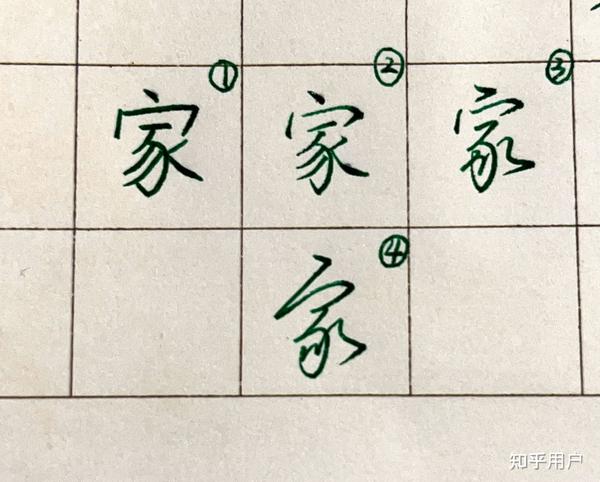 家① 家② 家③
家④
知乎用户